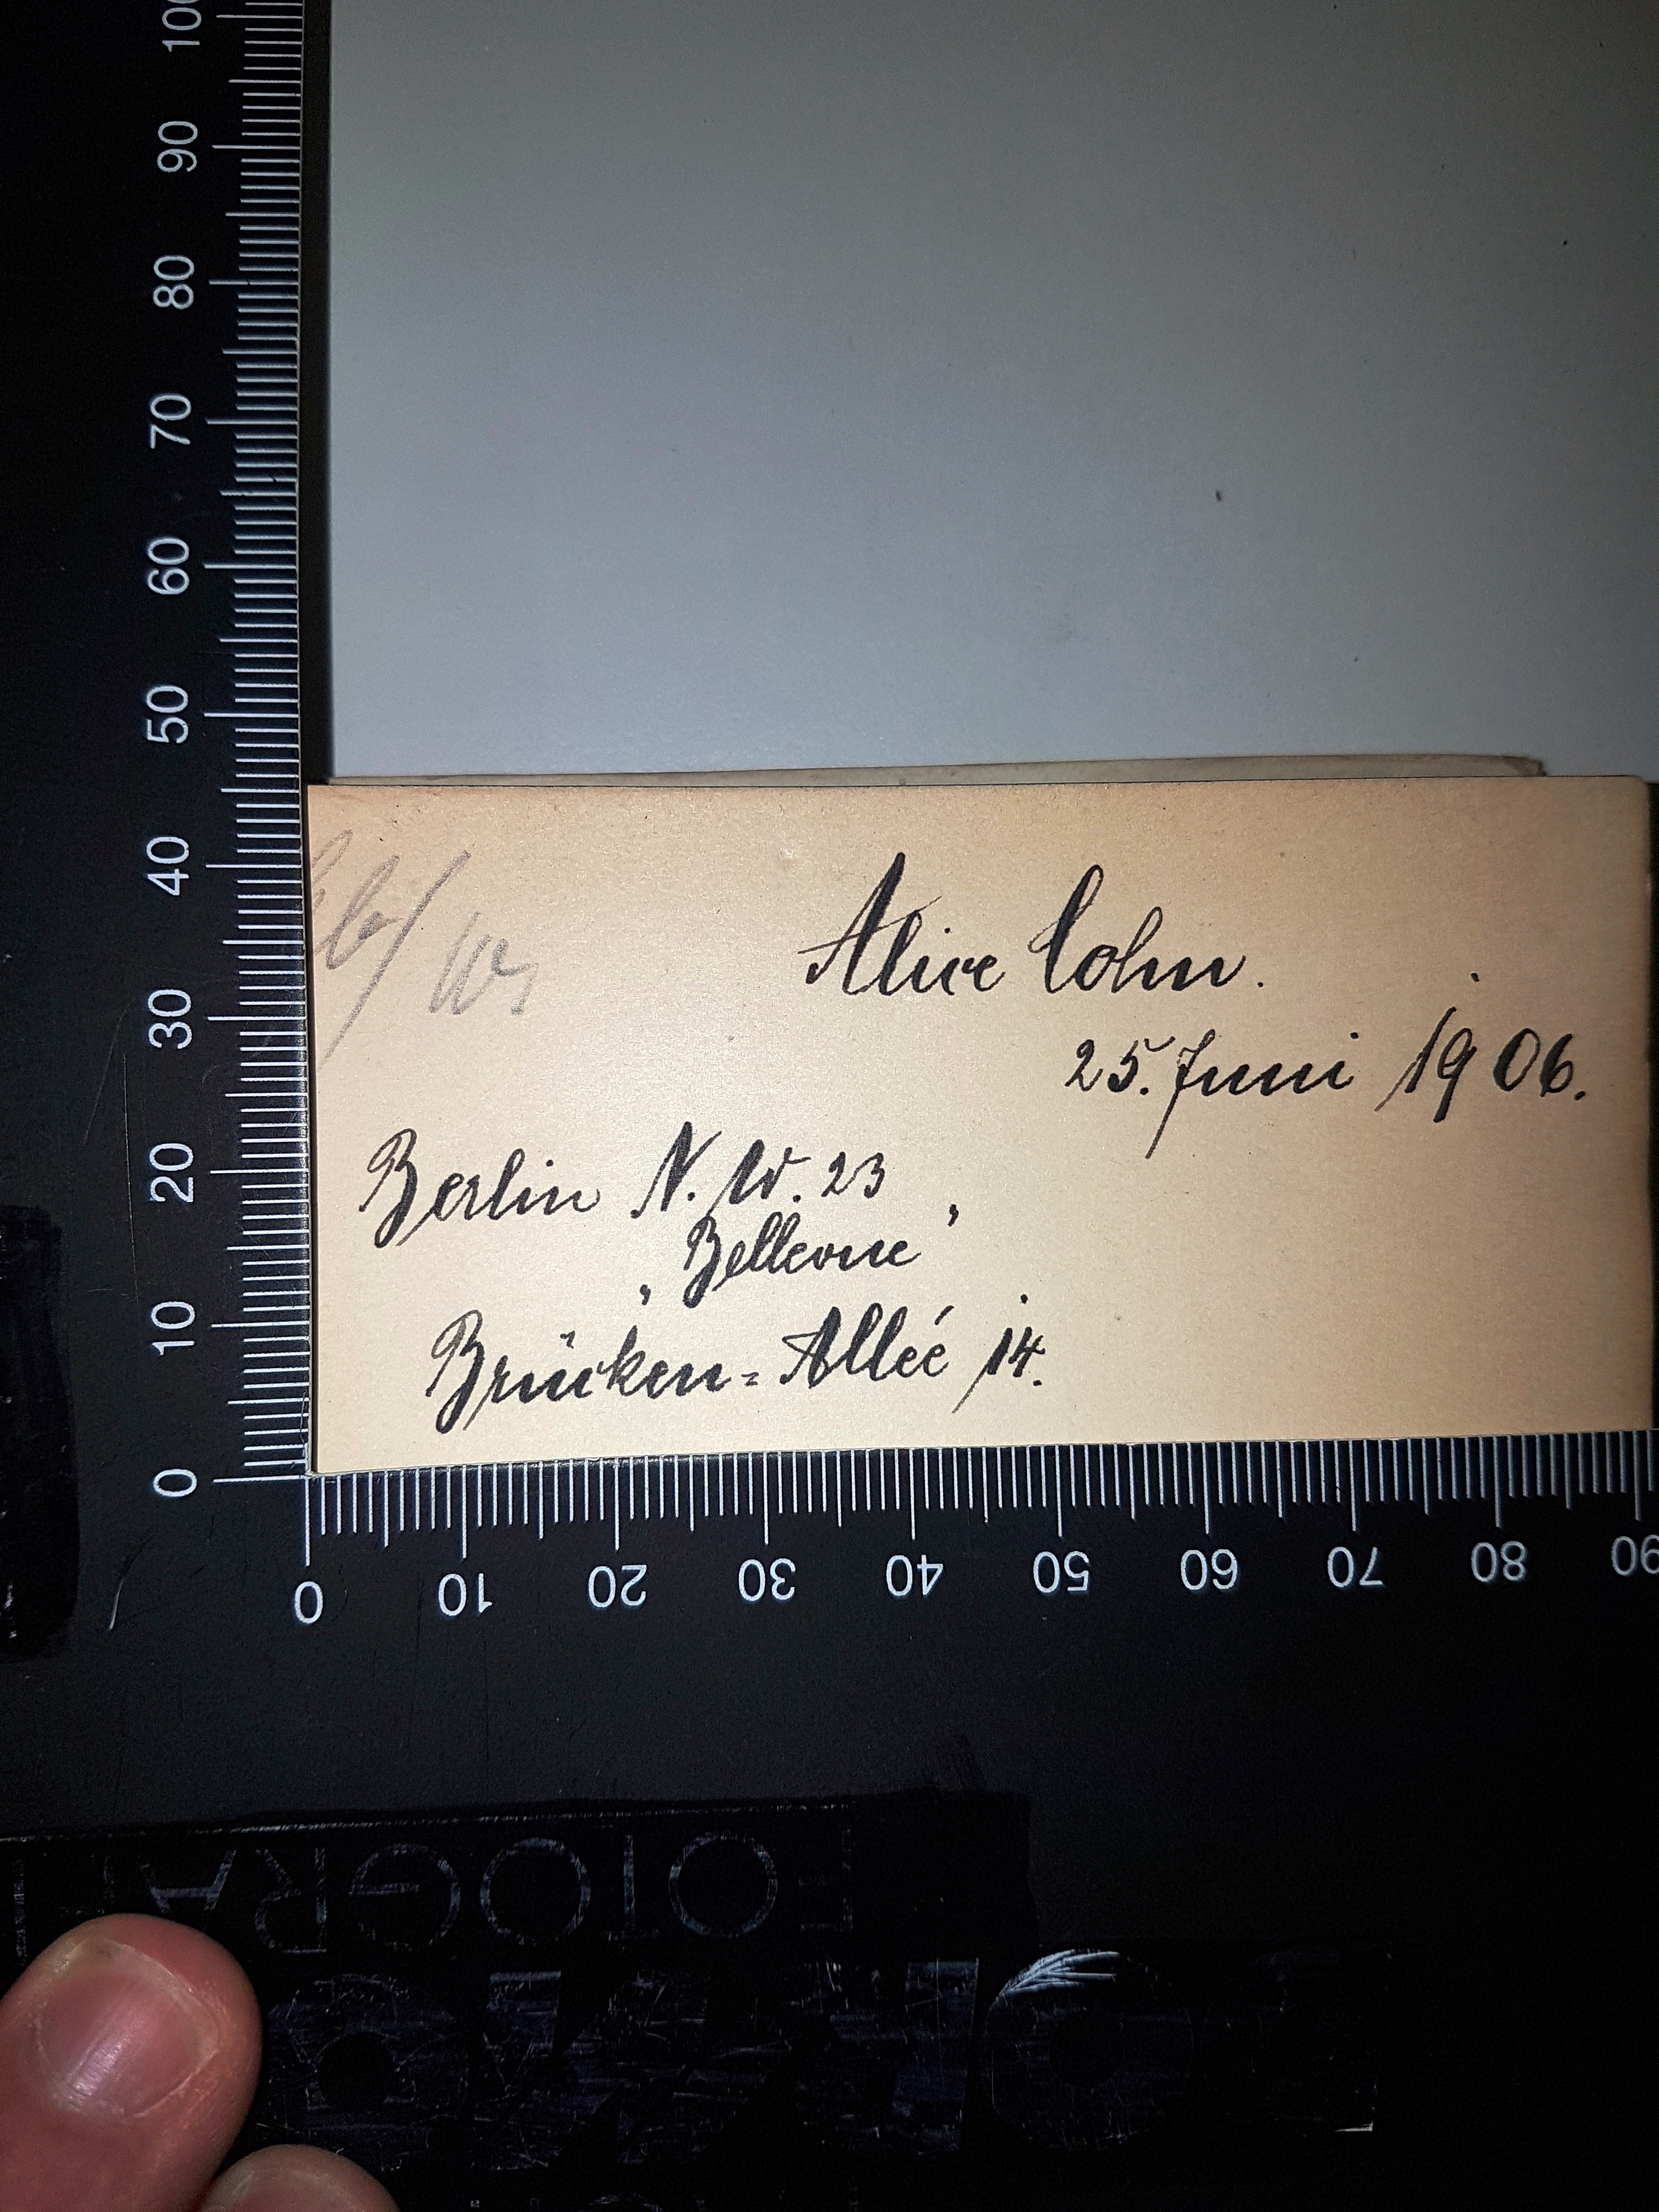 Alice Cohn.
25. Juni 1906.
Berlin N. W. 23
„Bellevue“
Brücken=Alleé 14.
100
90
80
70
60
50
40
30
20
10
0
0 10 20 30 40 50 60 70 80 90
FOTOGRA